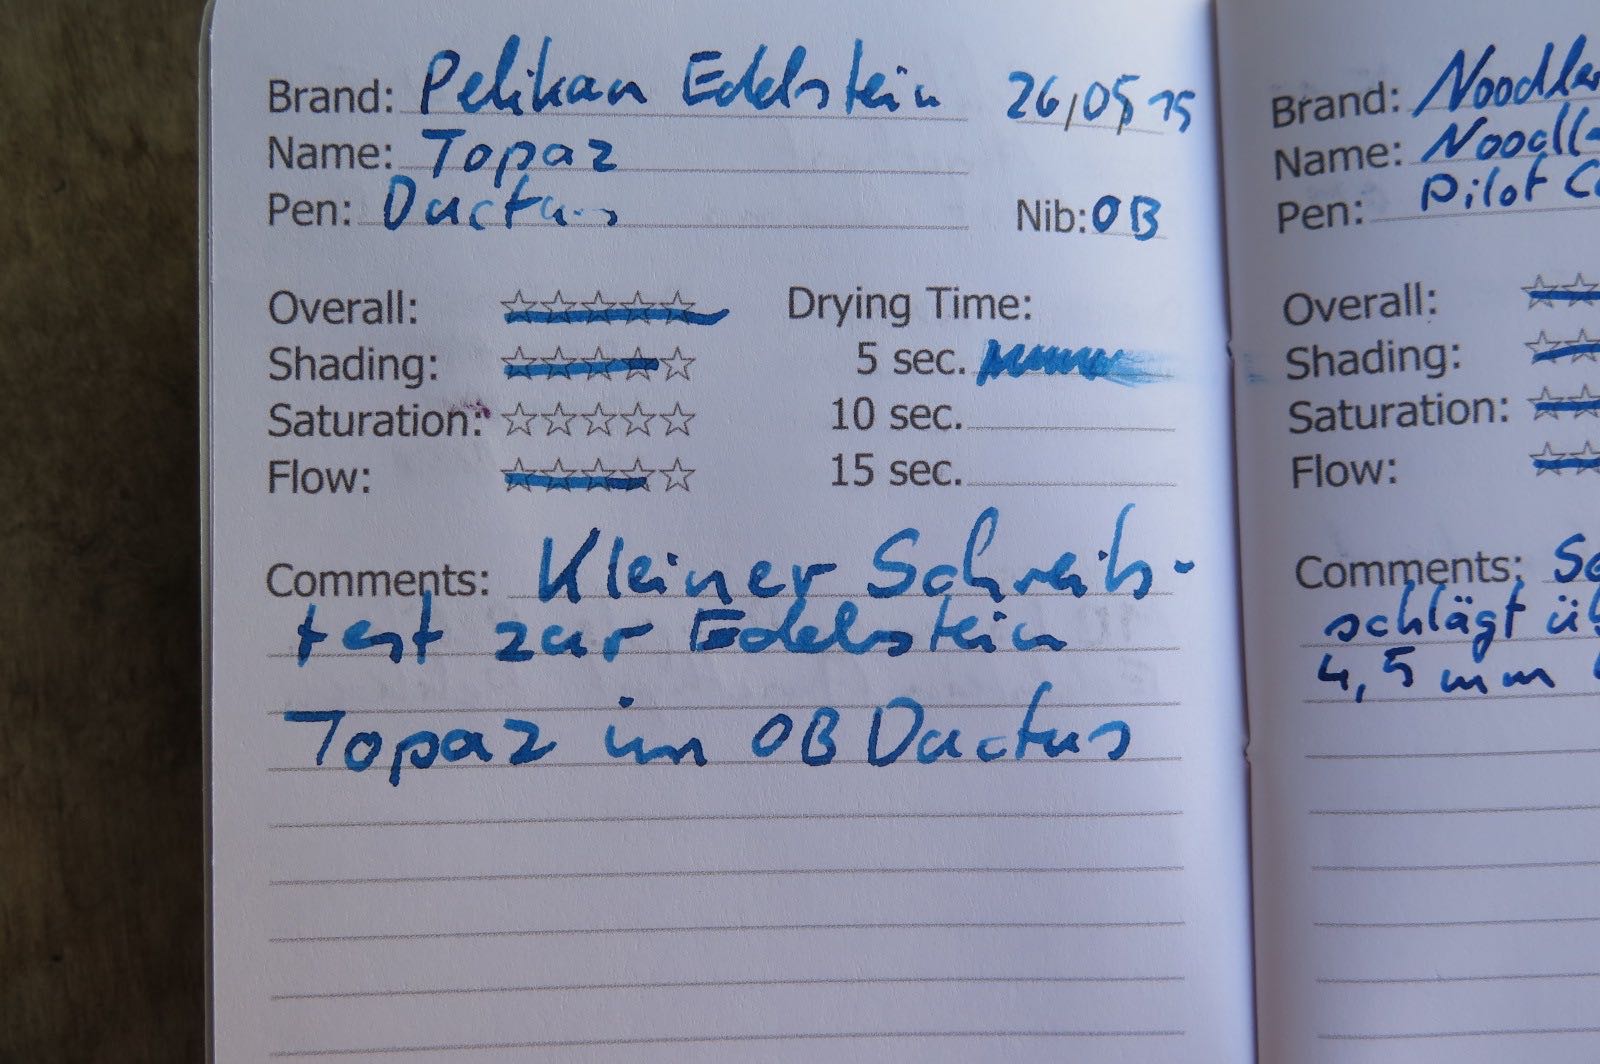 Brand: Pelikan Edelstein 26/05/15
Name: Topaz
Pen: Dactus Nib: OB
Overall: ☆☆☆☆☆ Drying Time:
Shading: ☆☆☆☆☆ 5 sec.
Saturation: ☆☆☆☆☆ 10 sec.
Flow: ☆☆☆☆☆ 15 sec.
Comments: Kleiner Schreib-
test zur Edelstein
Topaz im OB Dactus
Brand: Noodler
Name: Noodle
Pen: Pilot C
Overall: ☆☆
Shading: ☆☆
Saturation: ☆☆
Flow: ☆☆
Comments: Sc
schlägt üb
4,5 mm